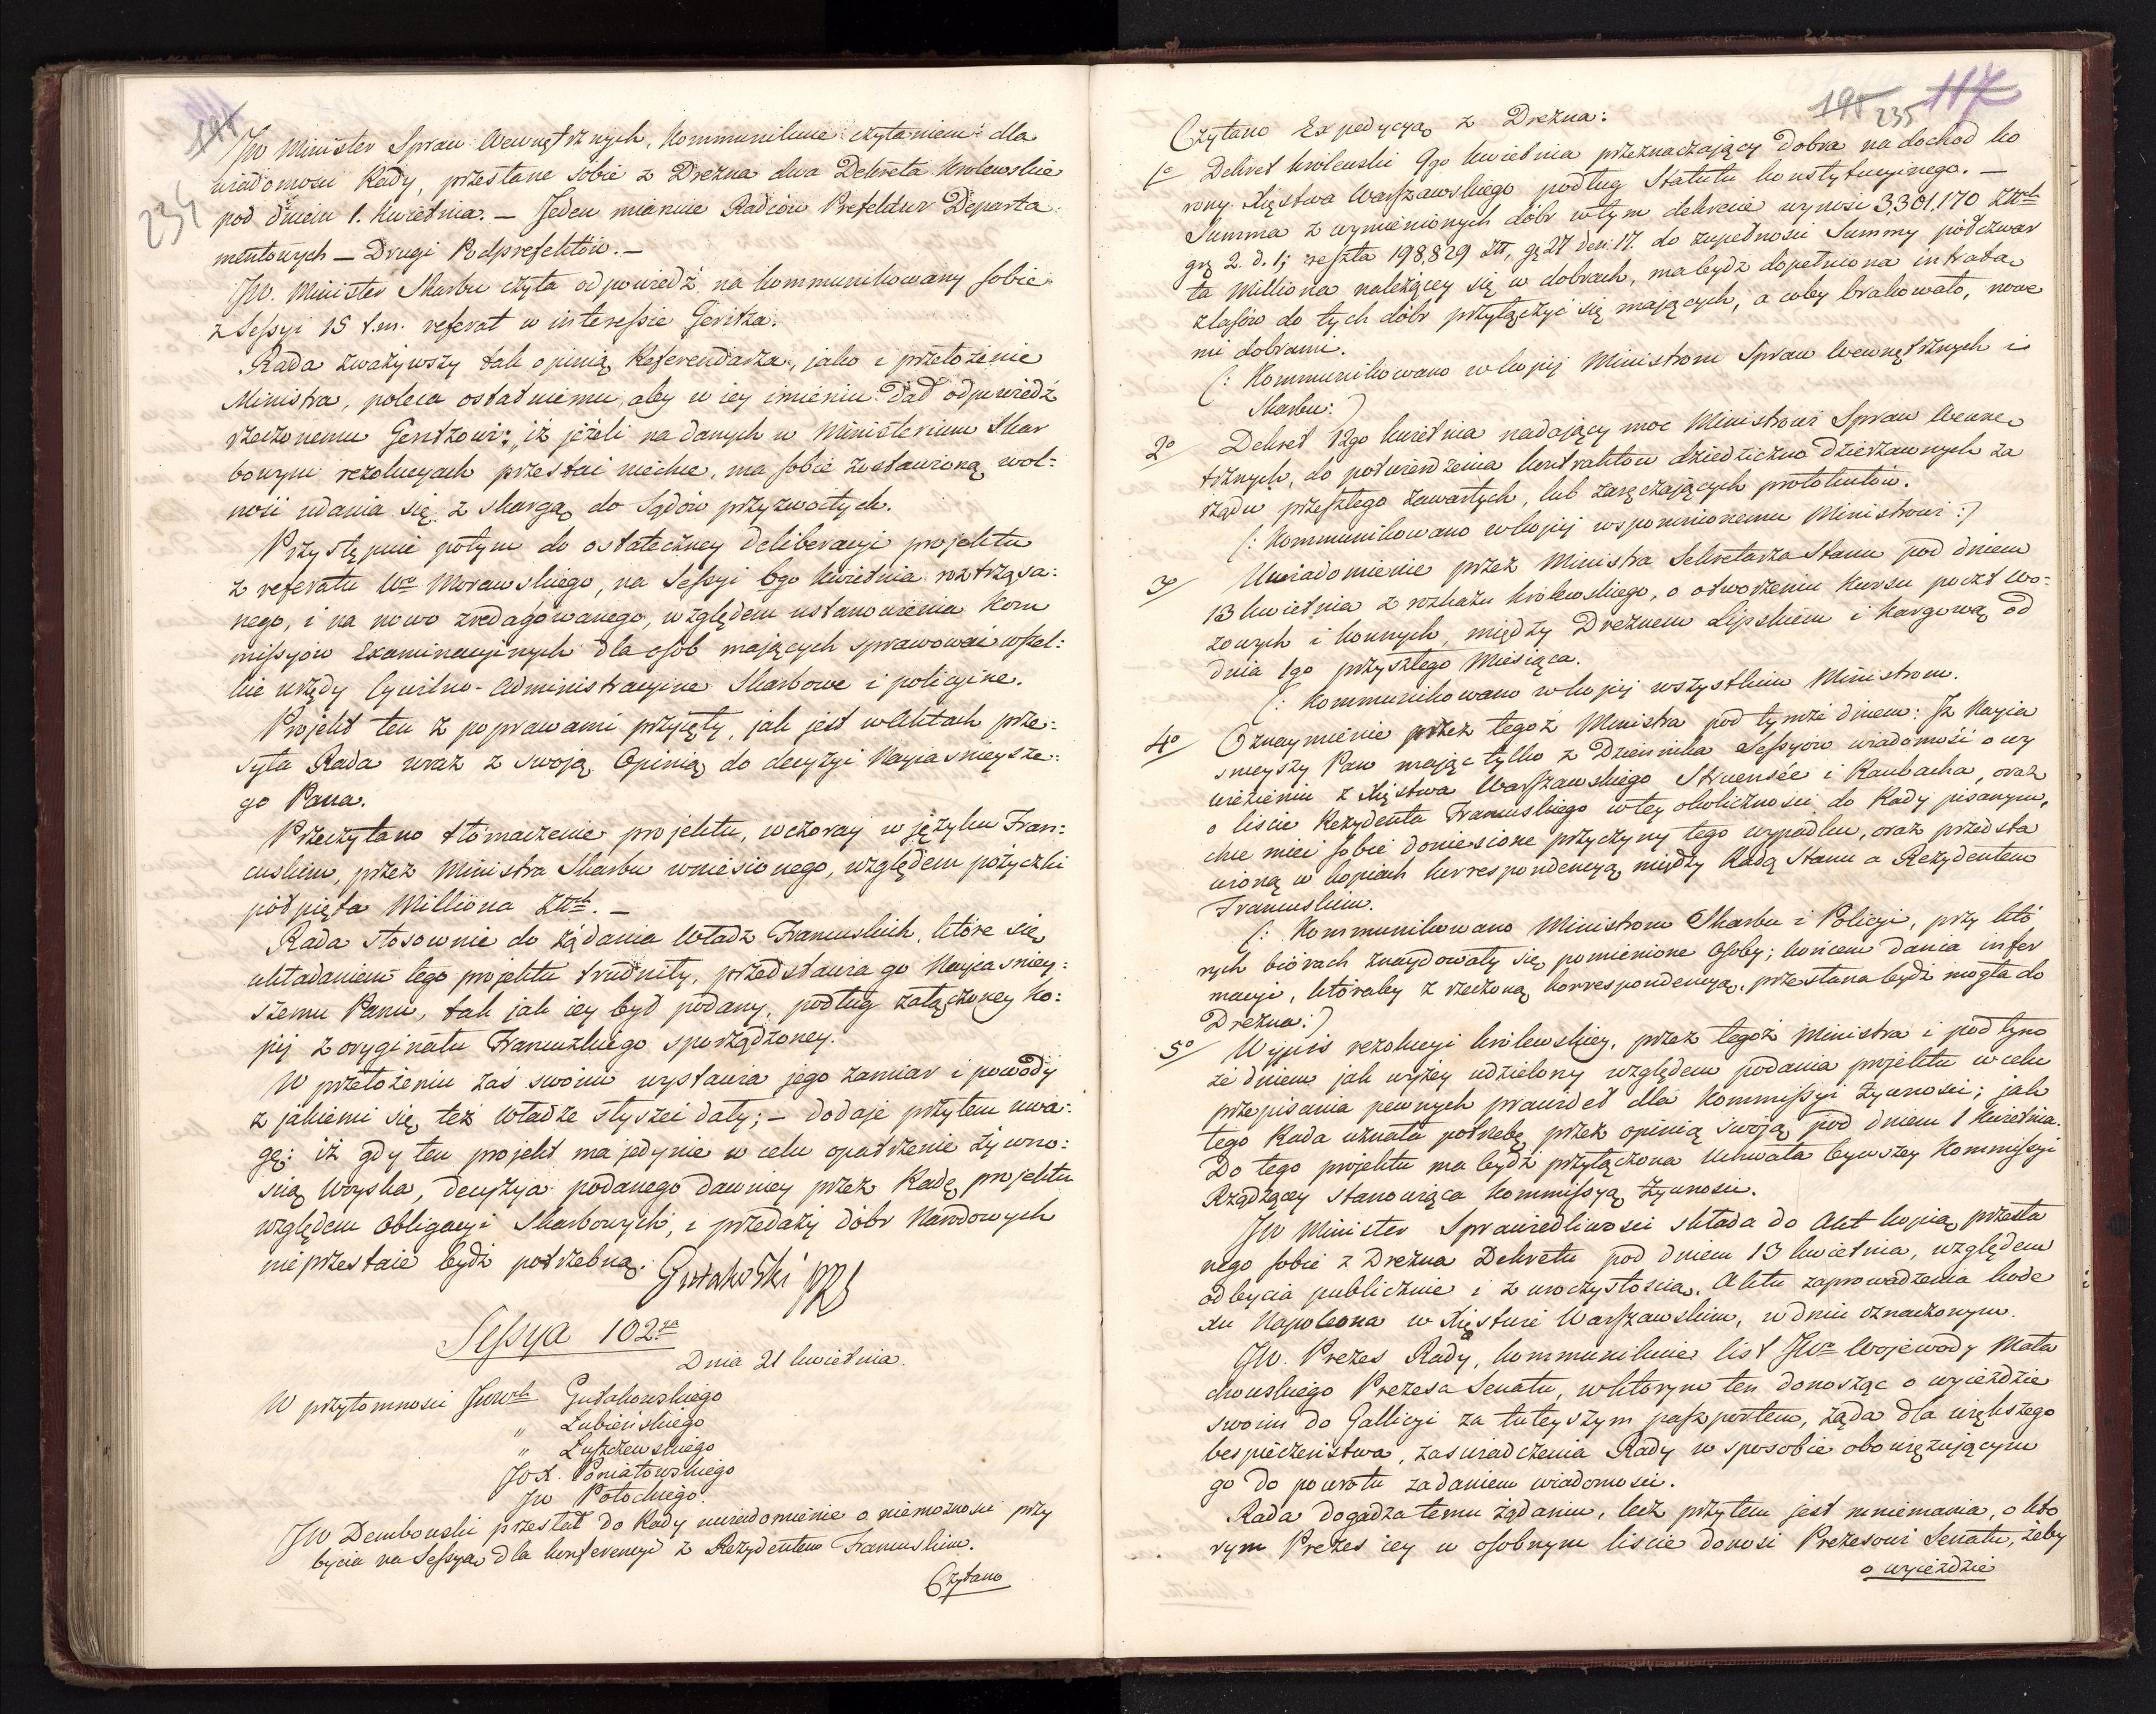 234
JW Minister Spraw Wewnętrznych, kommunikuie czytaniem dla
wiadomosci Rady, przesłane sobie z Drezna dwa Dekreta Krolewskie
pod dniem 1. Kwietnia. — Jeden mianuie Radców Prefektur Departa
mentowych — Drugi Podprefektów. —
JW. Minister Skarbu czyta odpowiedź na kommunikowany sobie
z Sessyi 15 t.m. referat w interessie Geritza.
Rada zważywszy tak opinią Referendarza, jako i przełożenie
Ministra, poleca ostatniemu aby w iey imieniu dał odpowiedź
rzeczonemu Geritzowi: „iż jeżeli na danych w Ministerium Skar
bowym rezolucyach przestać niechce, ma sobie zostawioną wol-
ność udania się z skargą do Sądów przyzwoitych.
Przystępuie potym do ostateczney deliberacyi projektu
z referatu Wo Morawskiego, na Sessyi 6go Kwietnia roztrząsa:
nego, i na nowo zredagowanego, względem ustanowienia Kom
missyów Examinacyinych dla osób mających sprawować wszel:
kie urzędy Cywilno-Administracyine Skarbowe i policyine.
Projekt ten z poprawami przyięty, jak jest w Aktach prze:
syła Rada wraz z swoją Opinią do decyzyi Nayiasnieysze:
go Pana.
Przeczytano tłómaczenie projektu, wczoray w języku Fran:
cuskim, przez Ministra Skarbu wniesionego, względem pożyczki
półpięta Milliona Złtch. —
Rada stosownie do żądania Władz Francuskich, które się
układaniem tego projektu trudniły, przedstawia go Nayiasniey:
szemu Panu, tak jak iey był podany, podług załączoney ko:
pij z oryginału Francuzkiego sporządzoney.
W przełożeniu zaś swoim wystawia jego zamiar i powody
z jakiemi się też Władze słyszeć dały; — dodaje przytem uwa:
gę: iż gdy ten projekt ma jedynie w celu opatrzenie żywno:
scią Woyska, decyzya podanego dawniey przez Radę projektu
względem Obligacyi Skarbowych, i przedaży dóbr Narodowych
nieprzestaie bydź potrzebną.
Gutakowski PRS
Sessya 102ga
Dnia 21 kwietnia.
W przytomnosci JWWch Gutakowskiego
„ Łubieńskiego
„ Łuszczewskiego
JOX. Poniatowskiego
JW Potockiego.
JW Dembowski przesłał do Rady uwiadomienie o niemożnosci przy
bycia na Sessyą dla konferencyi z Rezydentem Francuskim.
Czytano
195 235 117
Czytano Expedycyą z Drezna:
1o Dekret królewski 9go kwietnia przeznaczający dobra na dochod ko
rony. Xięstwa Warszawskiego podług Statutu konstytucyinego. —
Summa z wymienionych dóbr w tym dekrecie wynosi 3,301,170 Złtch
grz 2. d. 1; reszta 198,829 Złt, gr 27 den: 17. do zupełności Summy półczwar
ta Milliona należącey się w dobrach, ma bydz dopełniona intratą
z lasów do tych dóbr przyłączyć się mających, a coby brakowało, nowe
mi dobrami.
(: Kommunikowano w kopij Ministrom Spraw Wewnętrznych i
Skarbu:)
2o Dekret 12go kwietnia nadający moc Ministrowi Spraw Wewnę
trznych, do potwierdzenia kontraktow dziedziczno dzierżawnych za
rządu przeszłego zawartych, lub zaręczających protokułów.
(: Kommunikowano w kopij wspomnionemu Ministrowi :)
3 Uwiadomienie przez Ministra Sekretarza Stanu pod dniem
13 kwietnia z rozkazu królewskiego, o otworzeniu kursu poczt wo:
zowych i konnych, między Dreznem Lipskiem i Kargową od
dnia 1go przyszłego Miesiąca.
(: Kommunikowano w kopij wszystkim Ministrom.
4o Oznaymienie przez tegoż Ministra pod tymże dniem: Iż Nayia
snieyszy Pan mając tylko z Dziennika Sessyów wiadomość o wy
wiezieniu z Xięstwa Warszawskiego Struensée i Raubacha, oraz
o liscie Rezydenta Francuskiego w tey okoliczności do Rady pisanym,
chce mieć sobie doniesione przyczyny tego wypadku, oraz przedsta
wioną w kopiach korrespondencyą między Radą Stanu a Rezydentem
Francuskim.
(: Kommunikowano Ministrom Skarbu i Policyi, przy któ
rych biórach znaydowały się pomienione Osoby; końcem dania infor
macyi, któraby z rzeczoną korrespondencyą, przesłana bydź mogła do
Drezna:)
5o Wypis rezolucyi królewskiey, przez tegoż Ministra i pod tym
że dniem jak wyżey udzielony względem podania projektu w celu
przepisania pewnych prawideł dla Kommissyi żywnosci; jak
tego Rada uznała potrzebę przez opinią swoją pod dniem 1 Kwietnia.
Do tego projektu ma bydź przyłączona Uchwała bywszey Kommissyi
Rządzącey stanowiąca Kommissyą Żywnosci.
JW Minister Sprawiedliwości składa do Akt kopią przesła
nego sobie z Drezna Dekretu pod dniem 13 kwietnia, względem
odbycia publicznie i z uroczystoscią, Aktu zaprowadzenia kode
xu Napoleona w Xięstwie Warszawskim, w dniu oznaczonym.
JW. Prezes Rady, kommunikuie list JWo Wojewody Mała
chowskiego Prezesa Senatu, w którym ten donosząc o wyieździe
swoim do Gallicyi za tuteyszym paszportem, żąda dla większego
bespieczeństwa, zaswiadczenia Rady w sposobie obowiązującym
go do powrotu za daniem wiadomosci.
Rada dogadza temu żądaniu, lecz przytem jest mniemania, o któ
rym Prezes iey w osobnym liscie donosi Prezesowi Senatu, żeby
o wyieździe